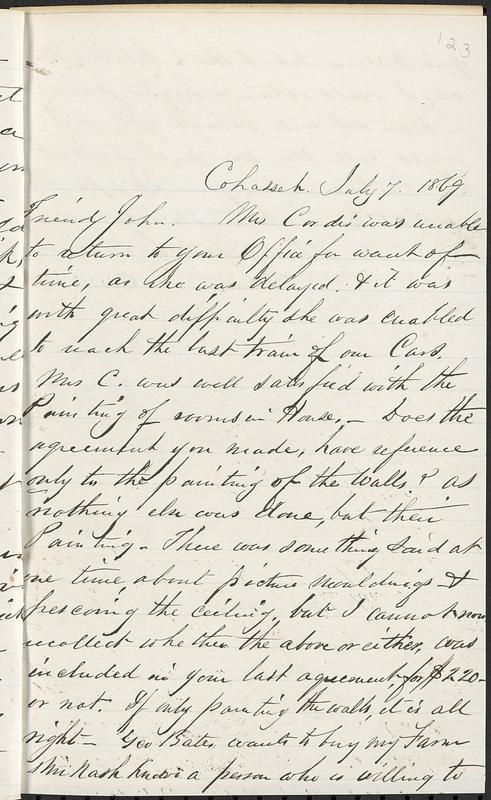 123
Cohasset. July 7. 1869
Friend John. Mrs Cordis was unable
to return to your Office for want of
time, as she was delayed. & it was
with great difficulty she was enabled
to reach the last train of our Cars.
Mrs C. was well satisfied with the
Painting of rooms in House. – Does the
agreement you made, have reference
only to the painting of the Walls? as
nothing else was done, but their
Painting – There was something said at
one time about picture mouldings &
frescoing the ceiling, but I cannot now
recollect whether the above or either, was
included in your last agreement, for $220–
or not. If only painting the walls, it is all
right – Geo Bates wants to buy my Farm
& Mr Nash knows a person who is willing to